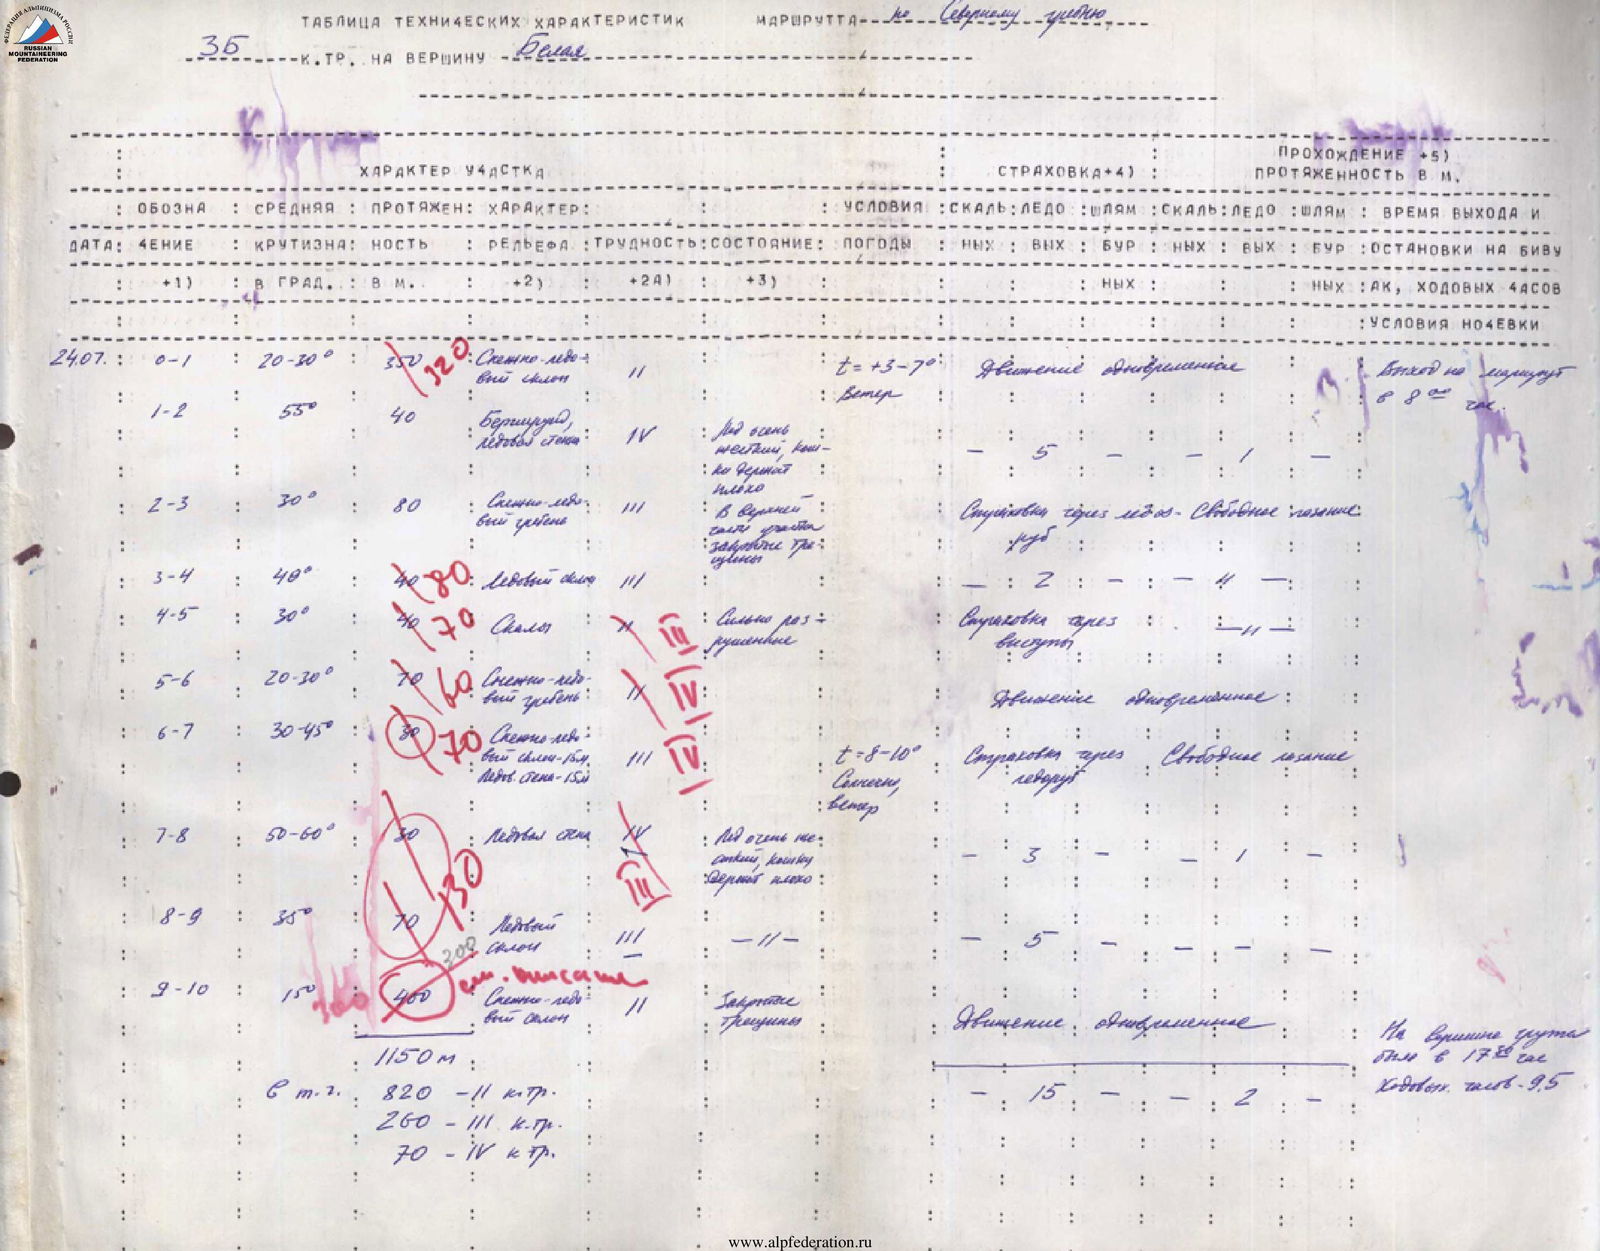 ФЕДЕРАЦИЯ АЛЬПИНИЗМА РОССИИ
RUSSIAN
MOUNTAINEERING
FEDERATION
ТАБЛИЦА ТЕХНИ4ЕСКИХ ХАРАКТЕРИСТИК МАРШРУТТА по Северному гребню
3Б К.ТР. НА ВЕРШИНУ Белая
ХАРАКТЕР У4АСТКА СТРАХОВКА+4) ПРОХОЖДЕНИЕ +5)
ПРОТЯЖЕННОСТЬ В М.
ОБОЗНА СРЕДНЯЯ ПРОТЯЖЕН: ХАРАКТЕР: УСЛОВИЯ :СКАЛЬ:ЛЕДО :ШЛЯМ :СКАЛЬ:ЛЕДО :ШЛЯМ : ВРЕМЯ ВЫХОДА И
ДАТА: 4ЕНИЕ : КРУТИЗНА: НОСТЬ : РЕЛЬЕФА :ТРУДНОСТЬ:СОСТОЯНИЕ: ПОГОДЫ : НЫХ : ВЫХ : БУР : НЫХ : ВЫХ : БУР :ОСТАНОВКИ НА БИВУ
+1) : В ГРАД. : В М. : +2) : +2А) : +3) НЫХ : НЫХ :АК, ХОДОВЫХ 4АСОВ
:УСЛОВИЯ НО4ЕВКИ
24.07. 0-1 20-30° 350 320 Снежно-ледо-
вый склон II t=+3-7°
Ветер Движение одновременное Выход на маршрут
в 8 00 час.
1-2 55° 40 Бергшрунд,
ледовая стена IV Лед очень
жесткий, кош-
ки держат
плохо — 5 — — 1 —
2-3 30° 80 Снежно-ледо-
вый гребень III В верхней
части участка
закрытые тре-
щины Страховка через ледо-
руб Свободное лазание
3-4 40° 40 80 Ледовый склон III — 2 — — 4 —
4-5 30° 40 70 Скалы II III Сильно раз-
рушенные Страховка через
выступы —11—
5-6 20-30° 70 60 Снежно-ледо-
вый гребень II IV Движение одновременное
6-7 30-45° 30 70 Снежно-ледо-
вый склон-15м
Ледов. стена-15м III IV t=8-10°
Солнечно,
ветер Страховка через
ледоруб Свободное лазание
7-8 50-60° 30 Ледовая стена IV III Лед очень же-
сткий, кошки
держат плохо — 3 — — 1 —
130
8-9 35° 70 Ледовый
склон III —11— — 5 — — — —
200
см. описание
9-10 15° 300 400 Снежно-ледо-
вый склон II Закрытые
трещины Движение одновременное На вершине группа
была в 17 30 час
Ходовых часов-9,5
1150 м — 15 — — 2 —
в т.ч. 820 - II к.тр.
260 - III к.тр.
70 - IV к тр.
www.alpfederation.ru